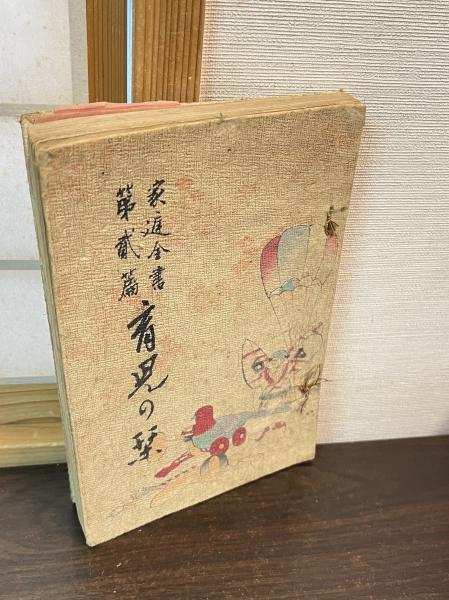 家庭全書
第貳篇
育児の栞